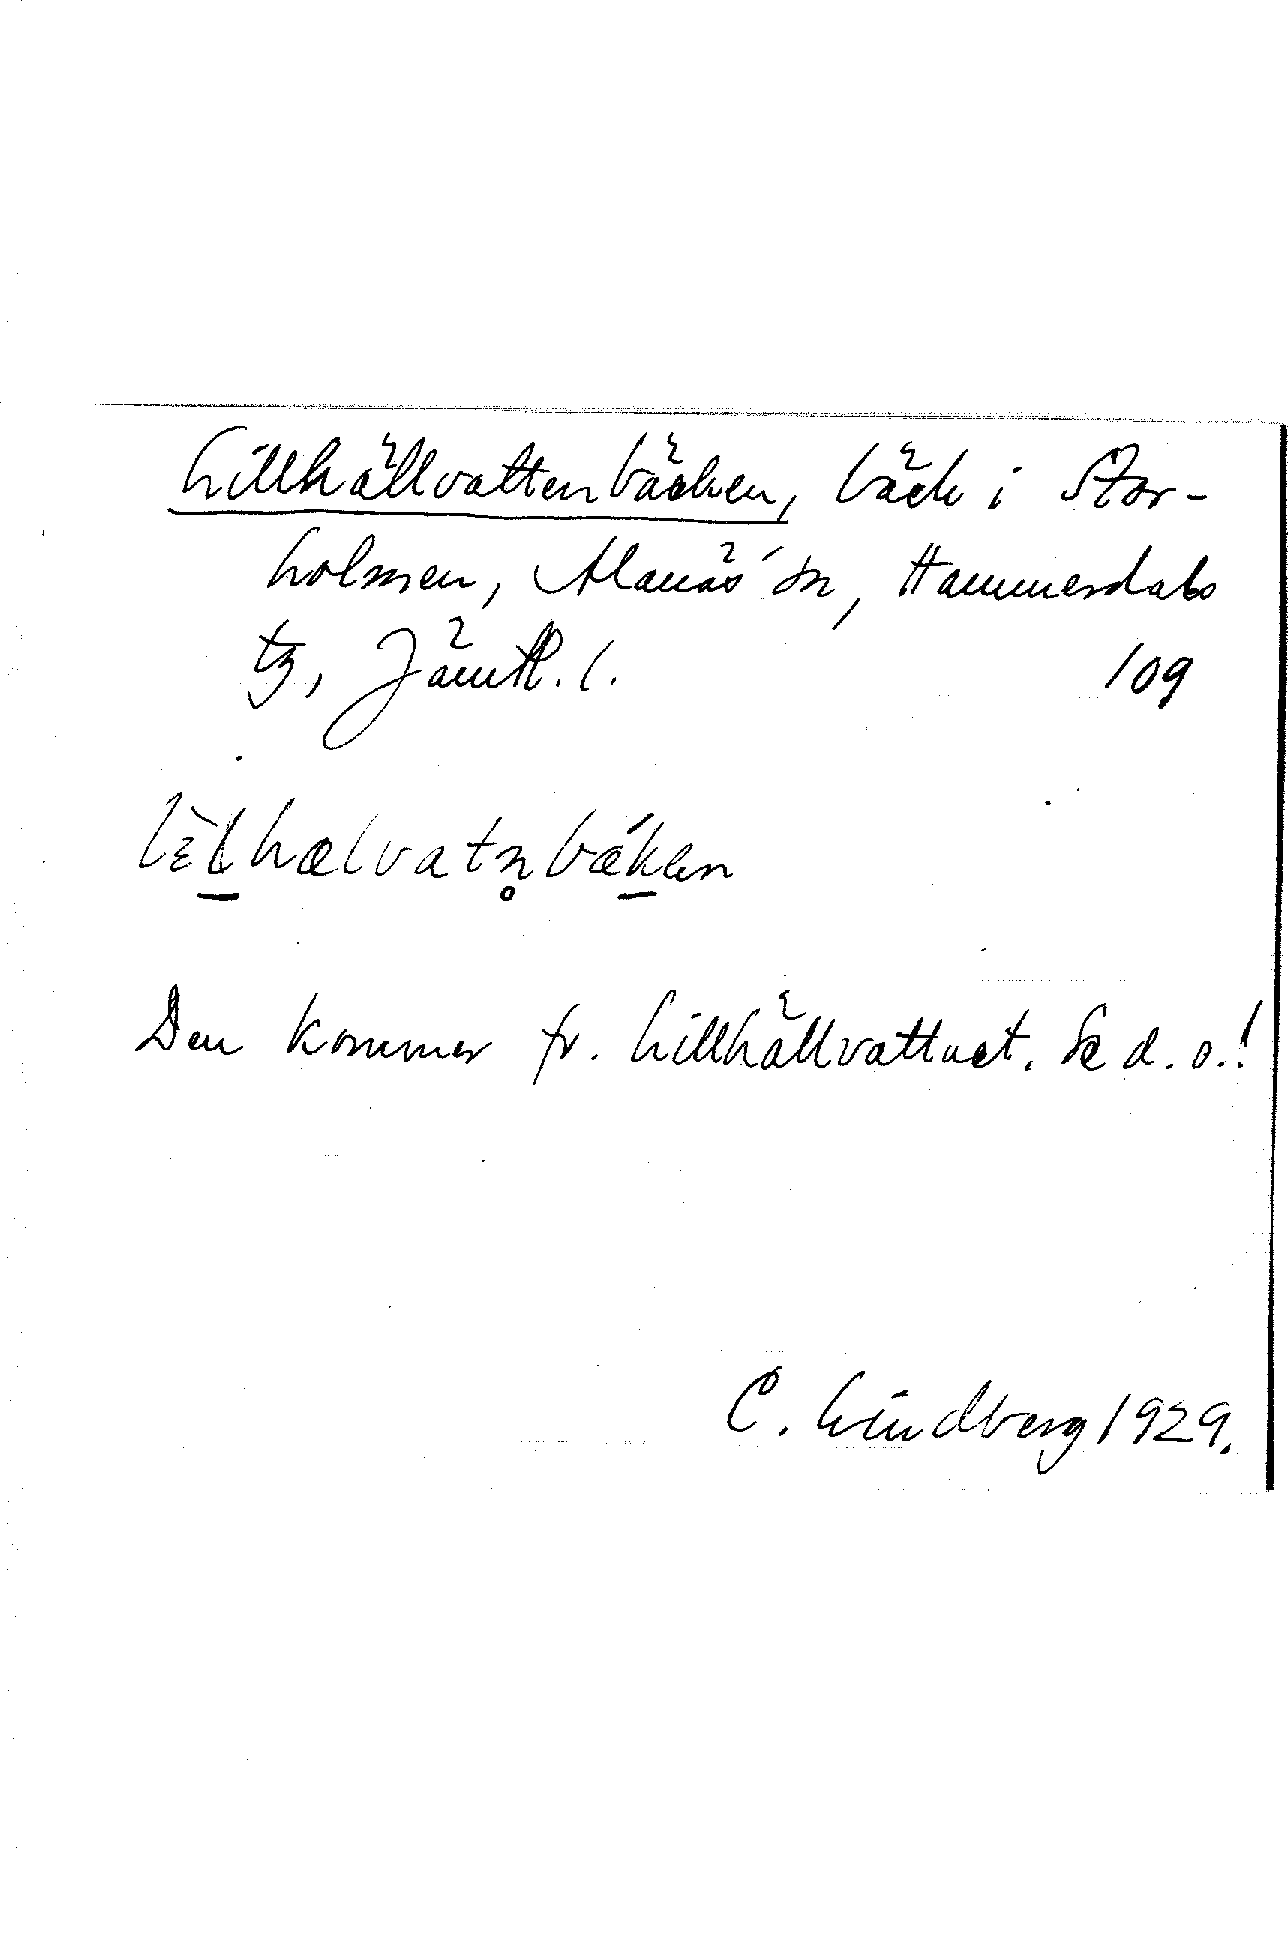 Lillhällvattenbäcken, bäck i Stor-
holmen, Alanäs sn, Hammerdals
tg, Jämtl. l. 109
lɛ̀l̲hælvatn̥bǽk̲en
Den kommer fr. Lillhällvattnet. Se d. o.!
C. Lindberg 1929.